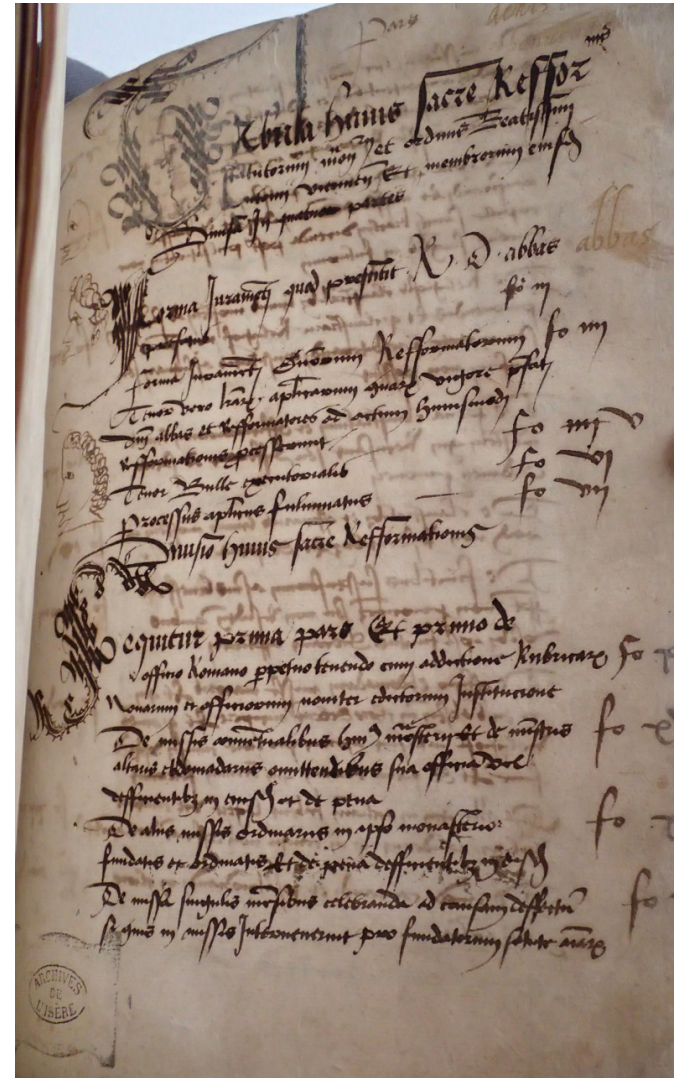 Pars
Tabula huius sacre Reffor
statutorum mon et ordinis Beatissimi
Et membrorum eiusd
Divisa In quatuor partes
abbas
Forma Juramti quod prestitit R. D. abbas
prefatus fo iii
Forma Juramti Refformatorum fo iiii
Tenor vero lrarx aplicarum quarx vigore pfati
dni abbas et Refformatores ad actum huiusmodi
Refformationis pcesserunt fo iiii V
Tenor Bulle executorialis fo VI
Processus aplicus fulminatus fo VII
Divisio huius sacre Refformationis
Sequitur prima pars Et primo de
officio Romano ppetuo tenendo cum addictione Rubricarx Fo
Novarum et officiorum noviter edictorum Institucione
De missis conventualibus hui mosterii Et de mistris fo
altaris ebdomadariis omittendibus sua officia vel
deffitientibz in eiusd et de pena
De aliis missis ordinariis in ipso monasterio fo
fundatis et ordinatis Et de pena deffitientibz in eisd
De missa singulis mesibus celebranda ad causam deffectu fo
si quis in missis Intervenerint pro fundatorum salute aiarx
ARCHIVES
DE
L'ISÈRE